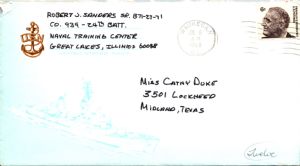 Robert J. Sanders SR. B71-23-91
Co. 939 - 24th Batt.
Naval Training Center
Great Lakes, Illinois 60088
Miss Cathy Duke
3501 Lockheed
Midland, Texas